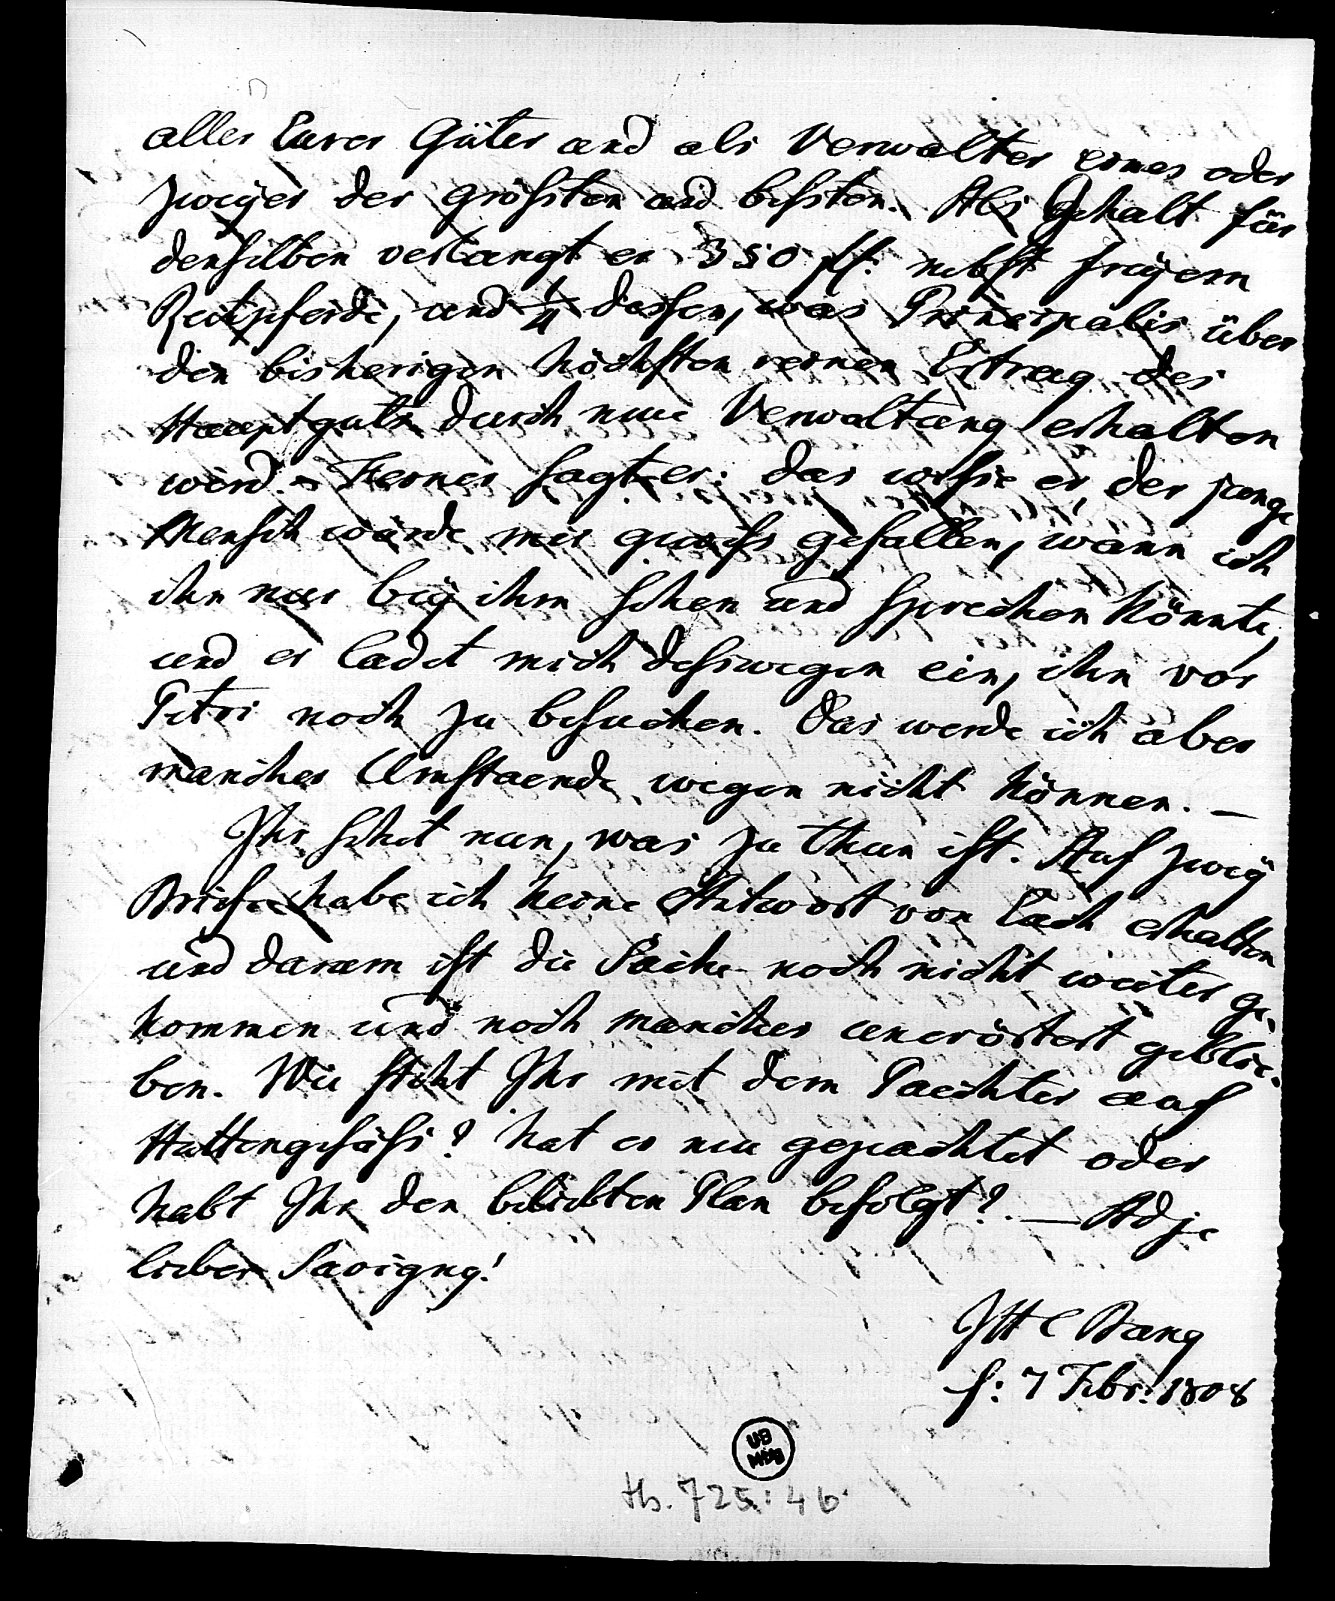 aller Eurer Güter und als Verwalter eines oder
zweyer der größten und besten. Als Gehalt für
denselben verlangt er 350 fl. nebst freyem
Reitpferde, und 1/4 dessen, was Principalis über
den bisherigen höchsten reinen Ertrag des
Hauptguts durch neue Verwaltung erhalten
wird. – Ferner sagt er: das wisse er, der junge
Mensch würde mir gewiss gefallen, wann ich
ihn nur bey ihm sehen und sprechen könnte,
und er ladet mich desswegen ein, ihn vor
Petri noch zu besuchen. Das werde ich aber
mancher Umstaende wegen nicht können. —
Ihr sehet nun, was zu thun ist. Auf zwey
Briefe habe ich keine Antwort von Euch erhalten
und darum ist die Sache noch nicht weiter ge-
kommen und noch manches unerörtert geblie-
ben. Wie steht Ihr mit dem Paechter auf
Hüttengesäss? hat er neu gepachtet oder
habt Ihr den beliebten Plan befolgt? — Adje
lieber Savigny!
JHC Bang
f: 7 Febr. 1808
UB
MBG
Hs. 725:46